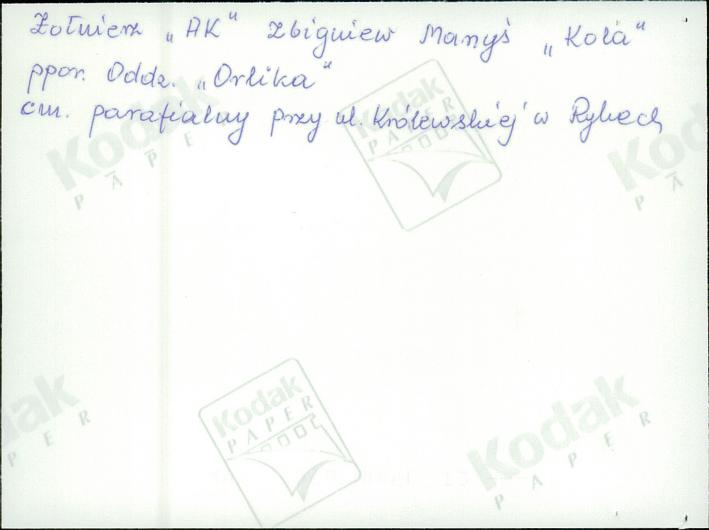 Żołnierz „AK" Zbigniew Manyś „Kola"
ppor. Oddz. „Orlika"
cm. parafialny przy ul. Królewskiej w Rykach
Kodak
PAPER
Kodak
PAPER
Kodak
PA
dak
PER
Kodak
PAPER
Kodak
PAPER